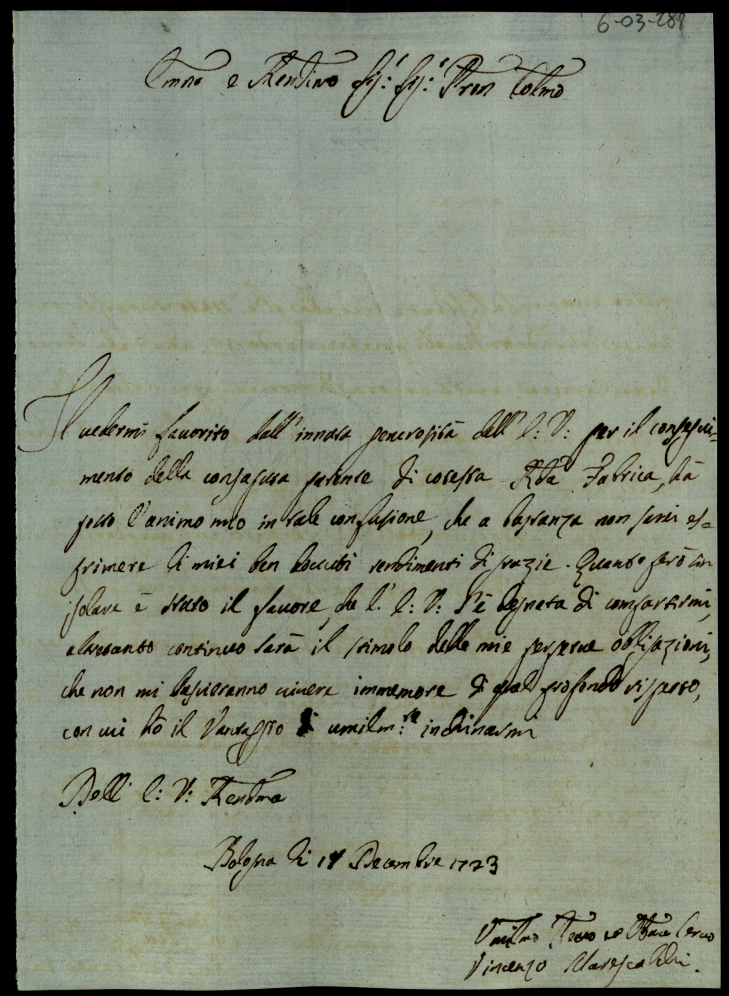 6-03-289
Emo e Rendmo Sig.r Sig.r Pron Colmo
Il vedermi favorito dall'innata generosità dell'E: V: per il consegui-
mento della consaputa patente di cotesta Rda Fabrica, hà
posto l'animo mio in tale confusione, che a bastanza non saprei es-
primere li miei ben dovuti rendimenti di grazie. Quanto però sin
golare è stato il favore, che l'E: V: s'è degnata di compartirmi,
altretanto continuo sarà il stimolo delle mie perpetue obligazioni,
che non mi lascieranno vivere immemore di quel profondo rispetto,
con cui hò il Vantaggio di umilm:te inchinarmi
Dell' E: V: Rendma
Bologna li Decembre 1723
Umilmo Devo ed Obmo Servo
Vincenzo Marescalchi.